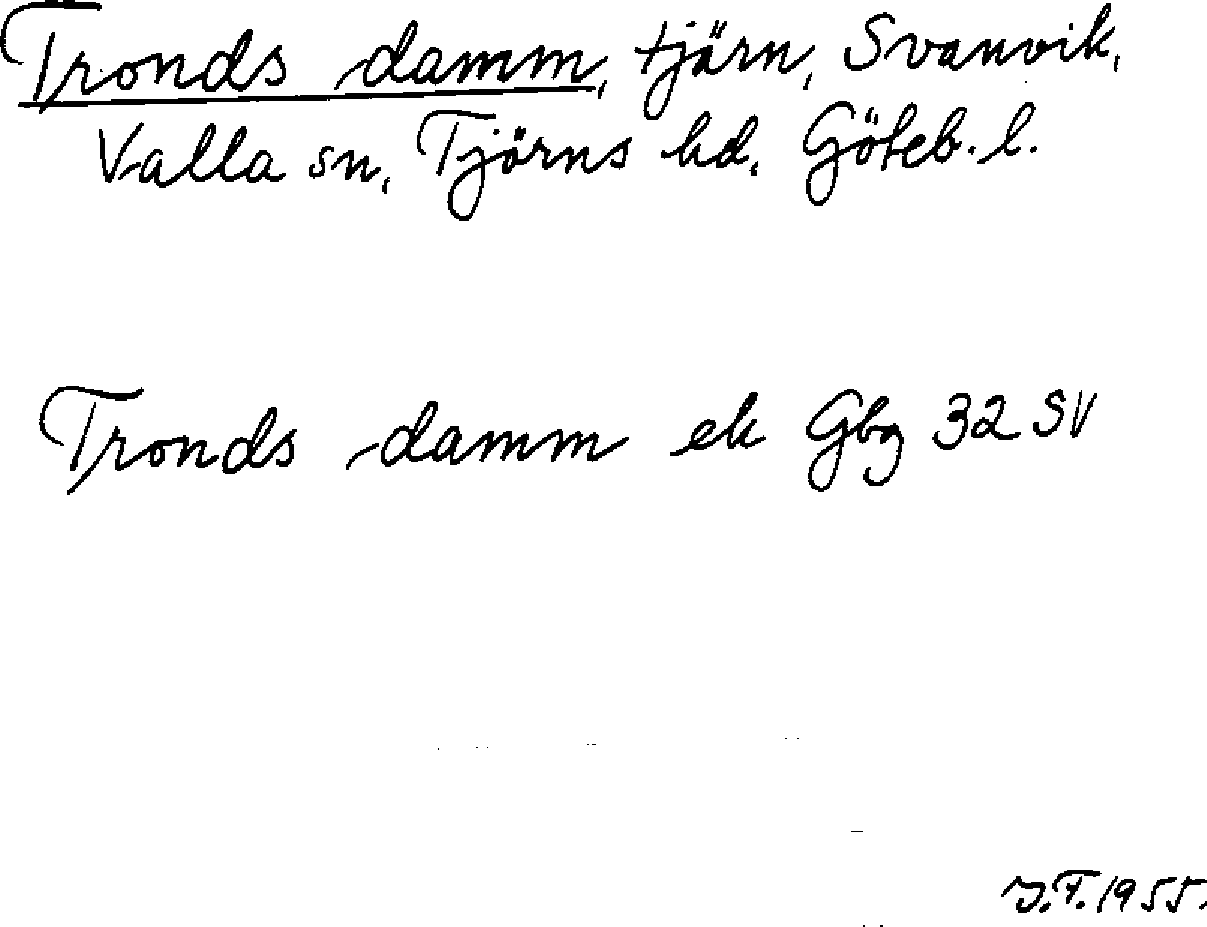 Tronds damm, tjärn, Svanvik,
Valla sn, Tjörns hd, Göteb. l.
Tronds damm ek Gbg 32 SV
J.F. 1955.